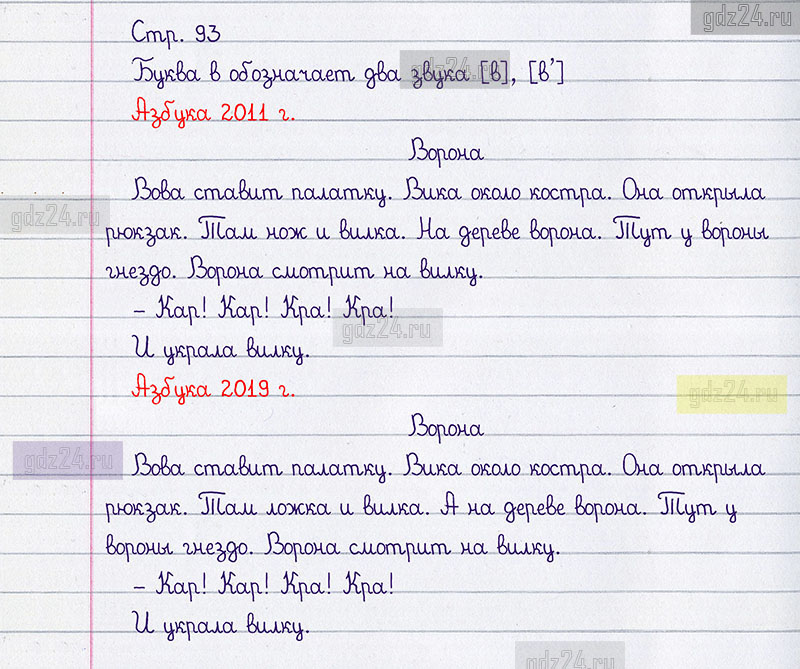 gdz24.ru
Стр. 93
Буква в обозначает два звука [в], [в’]
gdz24.ru
Азбука 2011 г.
Ворона
Вова ставит палатку. Вика около костра. Она открыла
gdz24.ru
рюкзак. Там нож и вилка. На дереве ворона. Тут у вороны
гнездо. Ворона смотрит на вилку.
– Кар! Кар! Кра! Кра!
gdz24.ru
И украла вилку.
Азбука 2019 г.
gdz24.ru
Ворона
gdz24.ru
Вова ставит палатку. Вика около костра. Она открыла
рюкзак. Там ложка и вилка. А на дереве ворона. Тут у
вороны гнездо. Ворона смотрит на вилку.
– Кар! Кар! Кра! Кра!
И украла вилку.
gdz24.ru